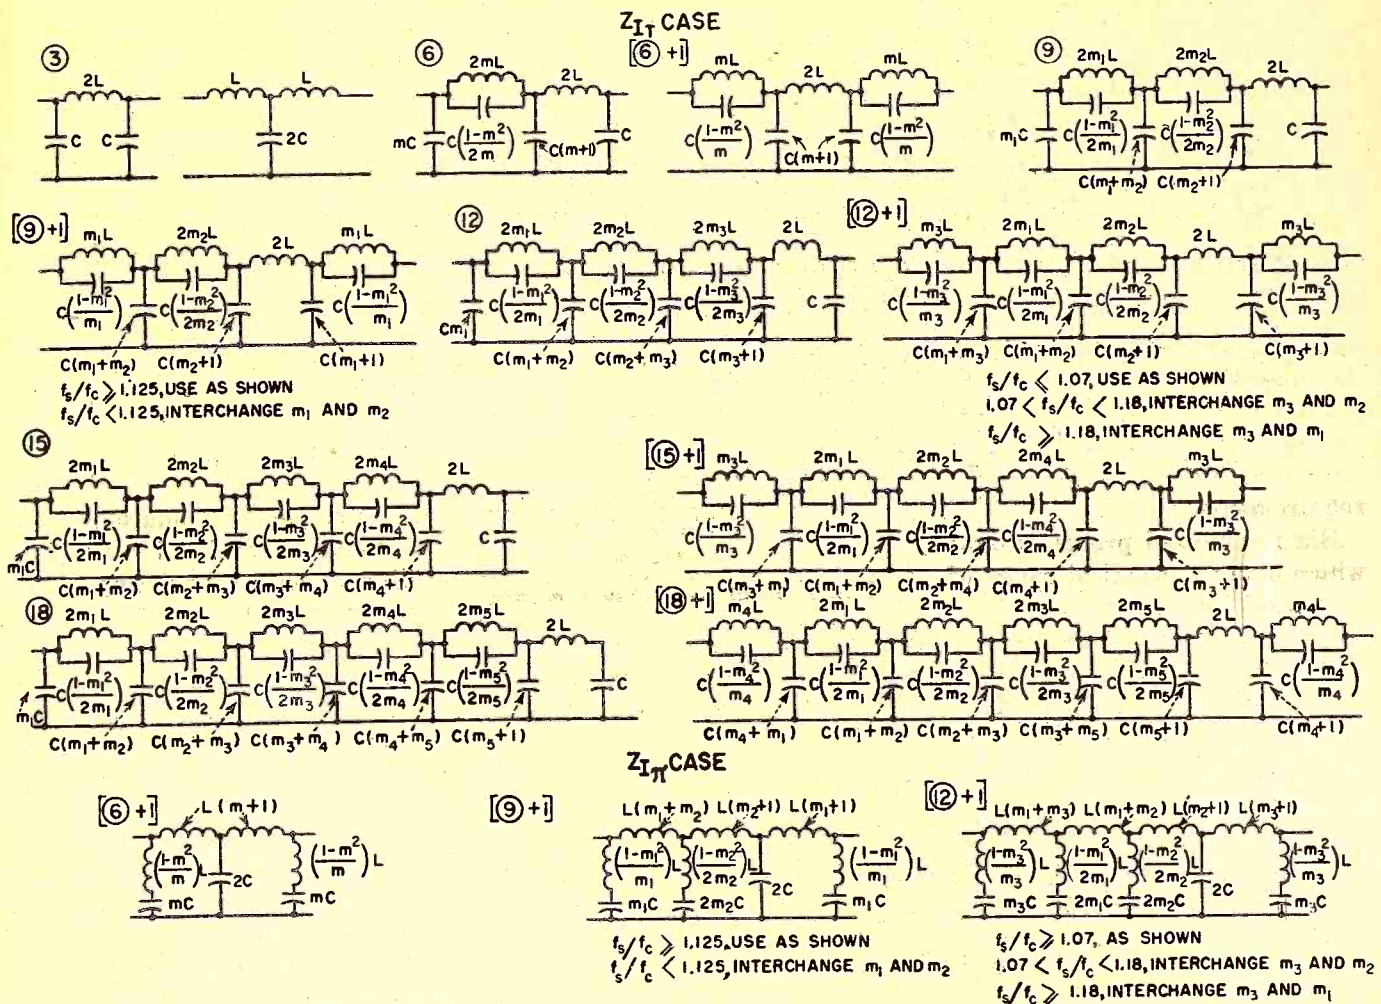 Z_IT CASE
③
2L
C
C
L
L
2C
⑥
2mL
2L
mC
C((1-m²)/2m)
C(m+1)
C
[⑥+1]
mL
2L
mL
C((1-m²)/m)
C(m+1)
C((1-m²)/m)
⑨
2m₁L
2m₂L
2L
m₁C
C((1-m₁²)/2m₁)
C((1-m₂²)/2m₂)
C
C(m₁+m₂)
C(m₂+1)
[⑨+1]
m₁L
2m₂L
2L
m₁L
C((1-m₁²)/m₁)
C((1-m₂²)/2m₂)
C((1-m₁²)/m₁)
C(m₁+m₂)
C(m₂+1)
C(m₁+1)
fs/fc ≥ 1.125, USE AS SHOWN
fs/fc < 1.125, INTERCHANGE m₁ AND m₂
⑫
2m₁L
2m₂L
2m₃L
2L
Cm₁
C((1-m₁²)/2m₁)
C((1-m₂²)/2m₂)
C((1-m₃²)/2m₃)
C
C(m₁+m₂)
C(m₂+m₃)
C(m₃+1)
[⑫+1]
m₃L
2m₁L
2m₂L
2L
m₃L
C((1-m₃²)/m₃)
C((1-m₁²)/2m₁)
C((1-m₂²)/2m₂)
C((1-m₃²)/m₃)
C(m₁+m₃)
C(m₁+m₂)
C(m₂+1)
C(m₃+1)
fs/fc ≤ 1.07, USE AS SHOWN
1.07 < fs/fc < 1.18, INTERCHANGE m₃ AND m₂
fs/fc ≥ 1.18, INTERCHANGE m₃ AND m₁
⑮
2m₁L
2m₂L
2m₃L
2m₄L
2L
m₁C
C((1-m₁²)/2m₁)
C((1-m₂²)/2m₂)
C((1-m₃²)/2m₃)
C((1-m₄²)/2m₄)
C
C(m₁+m₂)
C(m₂+m₃)
C(m₃+m₄)
C(m₄+1)
[⑮+1]
m₃L
2m₁L
2m₂L
2m₄L
2L
m₃L
C((1-m₃²)/m₃)
C((1-m₁²)/2m₁)
C((1-m₂²)/2m₂)
C((1-m₄²)/2m₄)
C((1-m₃²)/m₃)
C(m₃+m₁)
C(m₁+m₂)
C(m₂+m₄)
C(m₄+1)
C(m₃+1)
⑱
2m₁L
2m₂L
2m₃L
2m₄L
2m₅L
2L
m₁C
C((1-m₁²)/2m₁)
C((1-m₂²)/2m₂)
C((1-m₃²)/2m₃)
C((1-m₄²)/2m₄)
C((1-m₅²)/2m₅)
C
C(m₁+m₂)
C(m₂+m₃)
C(m₃+m₄)
C(m₄+m₅)
C(m₅+1)
[⑱+1]
m₄L
2m₁L
2m₂L
2m₃L
2m₅L
2L
m₄L
C((1-m₄²)/m₄)
C((1-m₁²)/2m₁)
C((1-m₂²)/2m₂)
C((1-m₃²)/2m₃)
C((1-m₅²)/2m₅)
C((1-m₄²)/m₄)
C(m₄+m₁)
C(m₁+m₂)
C(m₂+m₃)
C(m₃+m₅)
C(m₅+1)
C(m₄+1)
Z_Iπ CASE
[⑥+1]
L(m+1)
((1-m²)/m)L
2C
((1-m²)/m)L
mC
mC
[⑨+1]
L(m₁+m₂)
L(m₂+1)
L(m₁+1)
((1-m₁²)/m₁)L
((1-m₂²)/2m₂)L
((1-m₁²)/m₁)L
2C
m₁C
2m₂C
m₁C
fs/fc ≥ 1.125, USE AS SHOWN
fs/fc < 1.125, INTERCHANGE m₁ AND m₂
[⑫+1]
L(m₁+m₃)
L(m₁+m₂)
L(m₂+1)
L(m₃+1)
((1-m₃²)/m₃)L
((1-m₁²)/2m₁)L
((1-m₂²)/2m₂)L
((1-m₃²)/m₃)L
2C
m₃C
2m₁C
2m₂C
m₃C
fs/fc ≥ 1.07, AS SHOWN
1.07 < fs/fc < 1.18, INTERCHANGE m₃ AND m₂
fs/fc ≥ 1.18, INTERCHANGE m₃ AND m₁